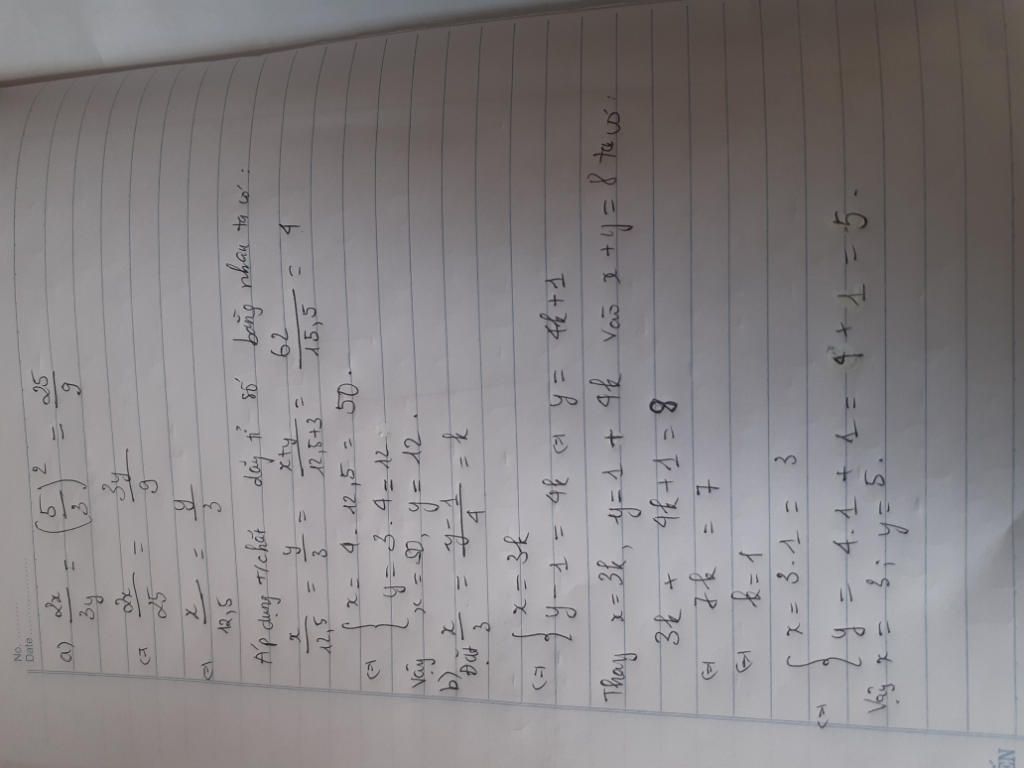 No.
Date
a) 2x/3y = (5/3)² = 25/9
(=) 2x/25 = 3y/9
(=) x/12,5 = y/3
Áp dụng t/chất dãy tỉ số bằng nhau ta có:
x/12,5 = y/3 = x+y/12,5+3 = 62/15,5 = 4
(=) { x = 4 . 12,5 = 50.
{ y = 3 . 4 = 12
Vậy x = 50, y = 12.
b) Đặt x/3 = y-1/4 = k
(=) { x = 3k
{ y - 1 = 4k (=) y = 4k + 1
Thay x = 3k, y = 1 + 4k vào x + y = 8 ta có:
3k + 4k + 1 = 8
(=) 7k = 7
(=) k = 1
(=) { x = 3 . 1 = 3
{ y = 4 . 1 + 1 = 4 + 1 = 5.
Vậy x = 3; y = 5.
ẾN